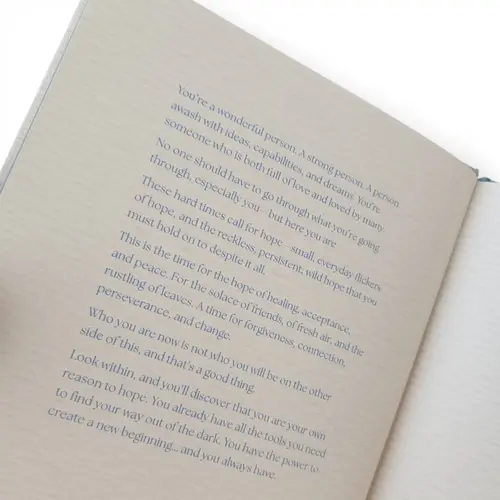 You're a wonderful person. A strong person. A person
awash with ideas, capabilities, and dreams. You're
someone who is both full of love and loved by many.
No one should have to go through what you're going
through, especially you – but here you are.
These hard times call for hope – small, everyday flickers
of hope, and the reckless, persistent, wild hope that you
must hold on to despite it all.
This is the time for the hope of healing, acceptance,
and peace. For the solace of friends, of fresh air, and the
rustling of leaves. A time for forgiveness, connection,
perseverance, and change.
Who you are now is not who you will be on the other
side of this, and that's a good thing.
Look within, and you'll discover that you are your own
reason to hope. You already have all the tools you need
to find your way out of the dark. You have the power to
create a new beginning... and you always have.